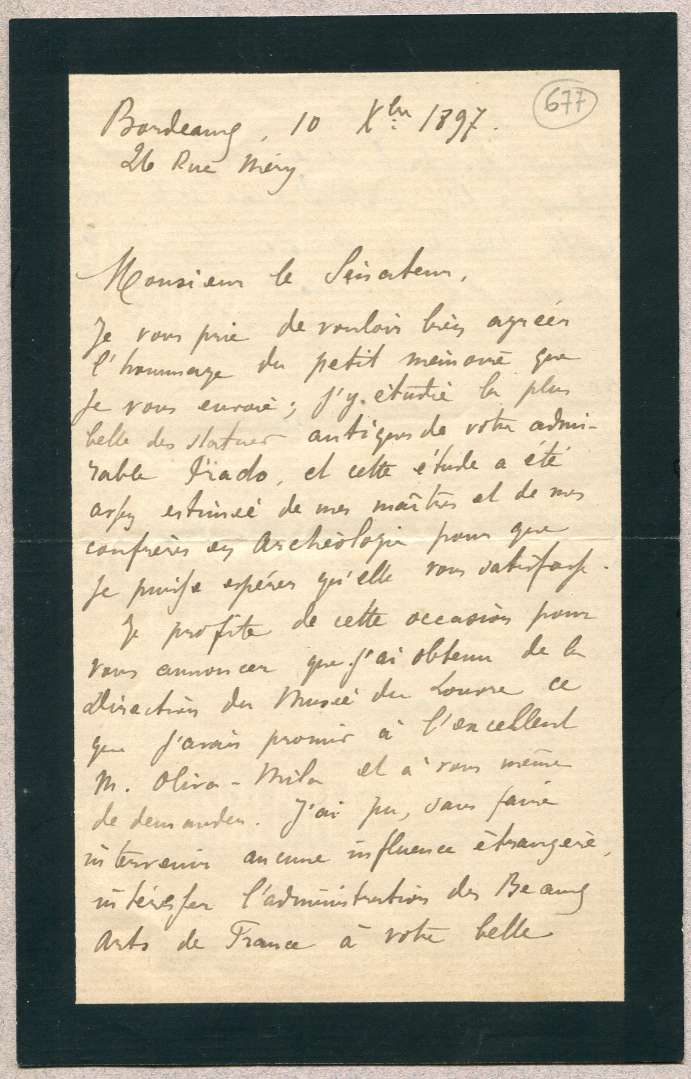 677
Bordeaux, 10 Xbre 1897.
26 Rue Méry
Monsieur le Sénateur,
Je vous prie de vouloir bien agréer
l'hommage du petit mémoire que
je vous envoie ; j'y étudie la plus
belle des statues antiques de votre admi-
rable Prado, et cette étude a été
assez estimée de mes maîtres et de mes
confrères en Archéologie pour que
je puisse espérer qu'elle vous satisfasse.
Je profite de cette occasion pour
vous annoncer que j'ai obtenu de la
Direction du Musée du Louvre ce
que j'avais promis à l'excellent
M. Oliva-Mila et à vous même
de demander. J'ai pu, sans faire
intervenir aucune influence étrangère,
intéresser l'administration des Beaux
Arts de France à votre belle